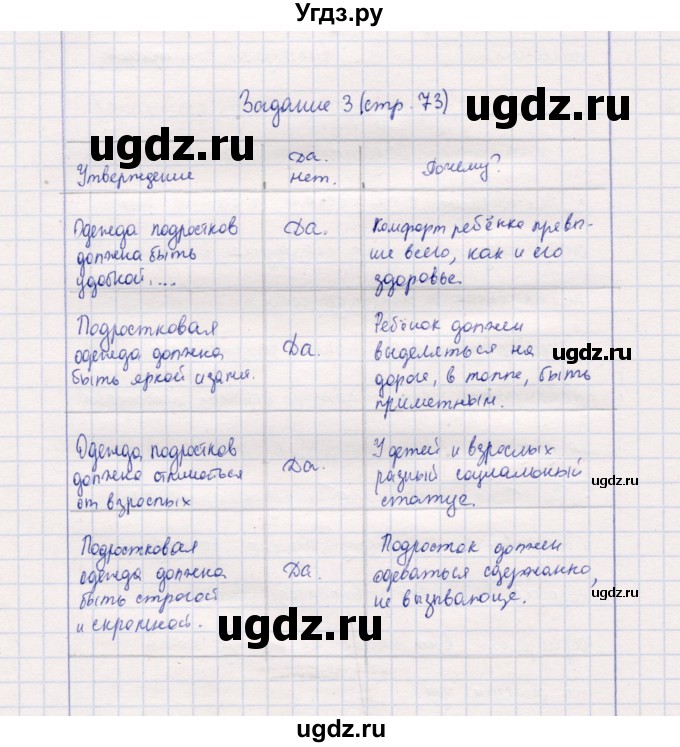 Угдз.ру
Задание 3 (стр. 73)
ugdz.ru
ugdz.ru
Утверждение
Да.
нет.
Почему?
Одежда подростков
должна быть
удобной....
Да.
Комфорт ребёнка превы-
ше всего, как и его
здоровье.
Подростковая
одежда должна
быть яркой
Да.
Ребёнок должен
выделяться на
дороге, в толпе, быть
приметным.
ugdz.ru
Одежда подростков
должна отличаться
от взрослых
Да.
У детей и взрослых
разный социальный
статус.
ugdz.ru
Подростковая
одежда должна
быть строгой
и скромной.
Да.
Подросток должен
одеваться сдержанно,
не вызывающе.
ugdz.ru
ugdz.ru
ugdz.ru